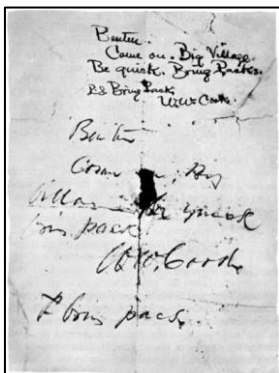 Benteen.
Come on. Big Village.
Be quick. Bring Packs.
P.S Bring Pack
W.W. Cooke.
Benteen
Come on. Big
Village be quick
bring packs
W.W. Cooke
P bring pacs